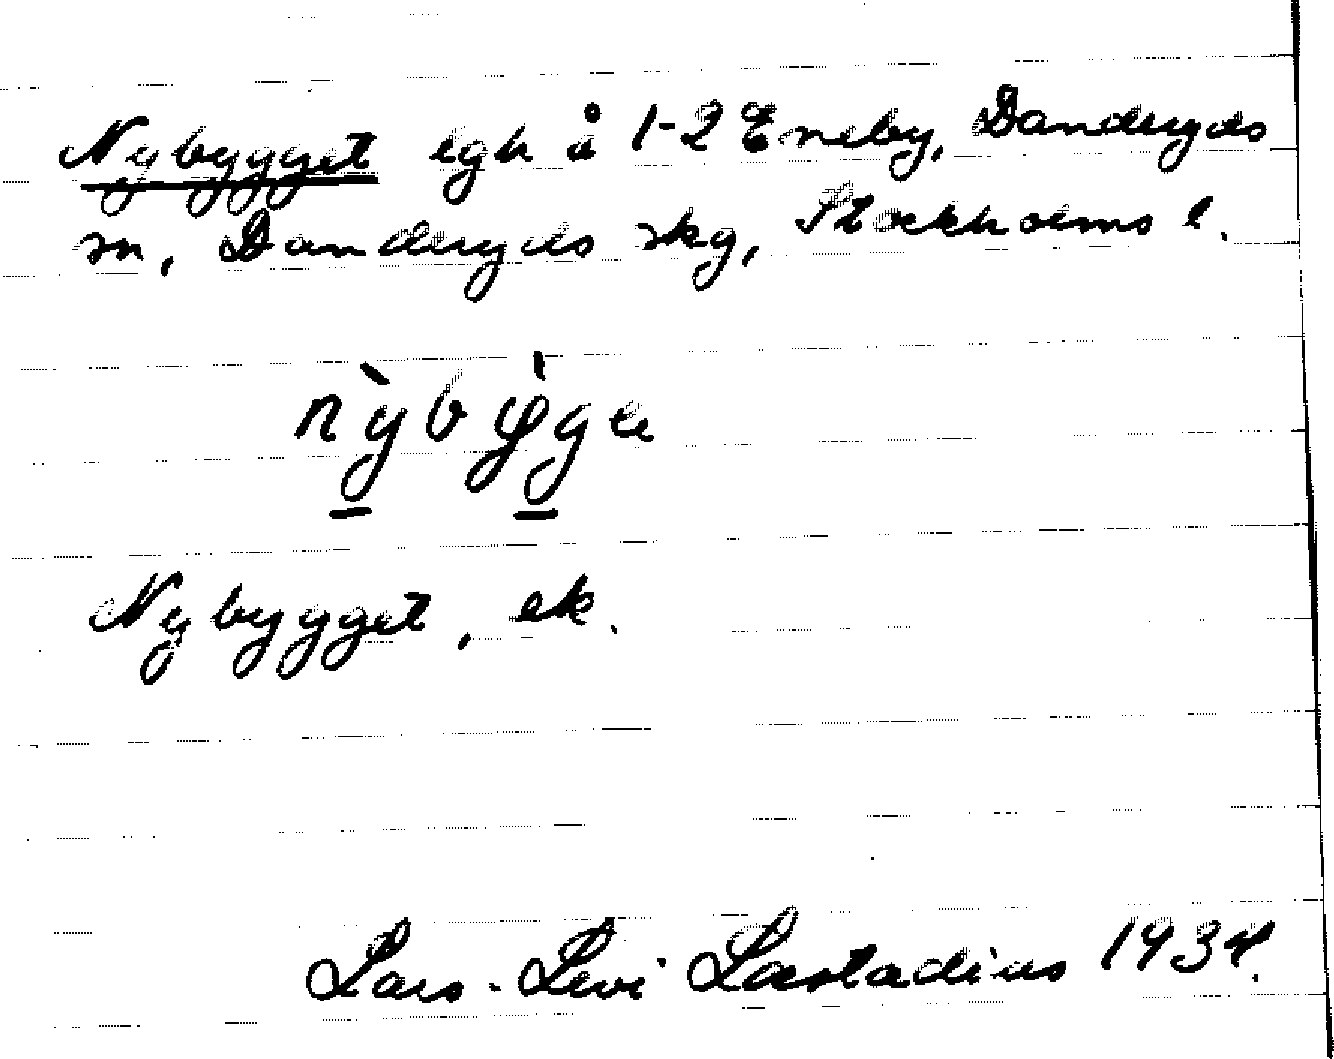 Nybygget lgh å 1-2 Eneby, Danderyds
sn, Danderyds skg, Stockholms l.
Nybygget, ek.
Lars-Levi Læstadius 1934.